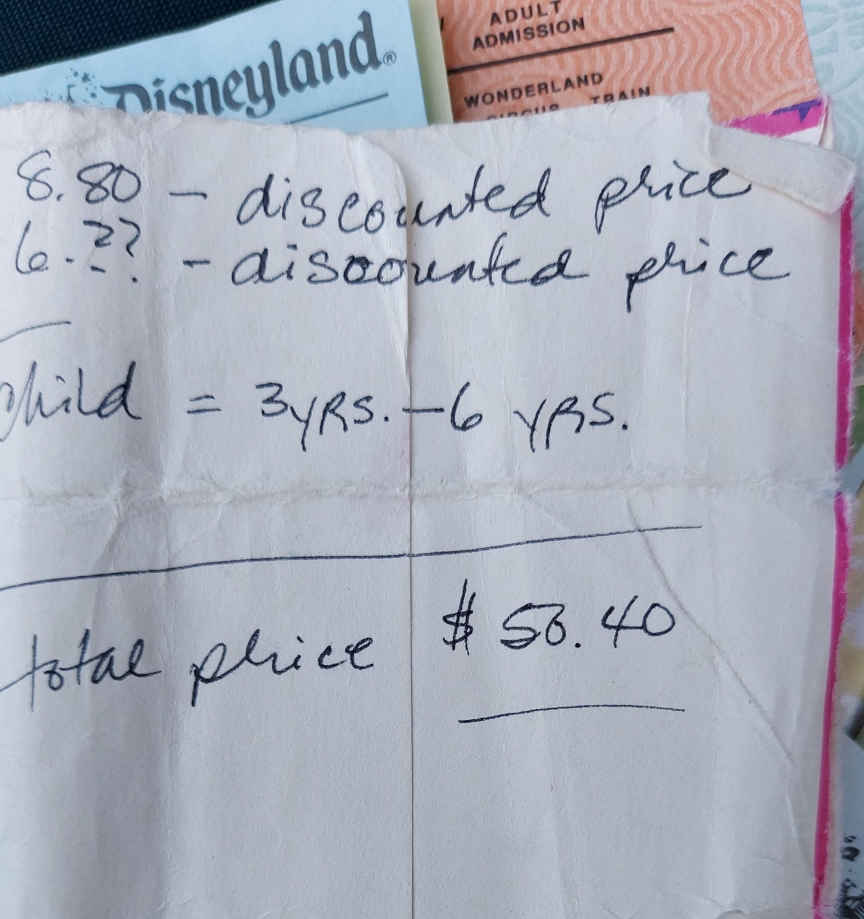 ADULT
ADMISSION
Disneyland®
WONDERLAND
CIRCUS TRAIN
8.80 - discounted price
6.?? - discounted price
Child = 3yRS. - 6 yRS.
total price $ 56.40